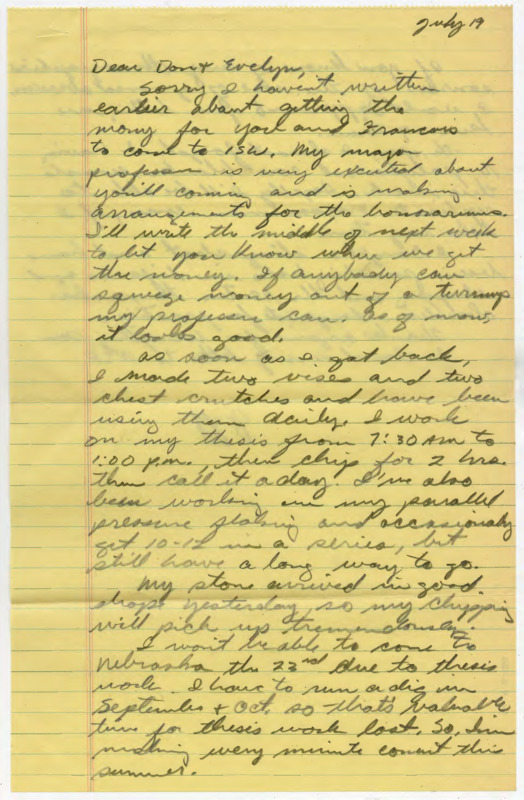 July 19
Dear Don & Evelyn,
Sorry I haven't written
earlier about getting the
mony for you and Francois
to come to ISU. My major
professor is very excited about
you'll coming and is making
arrangements for the honorariums.
I'll write the middle of next week
to let you know when we get
the money. If anybody can
squeeze money out of a turnup
my professor can. As of now,
it looks good.
As soon as I got back,
I made two vises and two
chest crutches and have been
using them daily. I work
on my thesis from 7:30 AM to
1:00 p.m., then chip for 2 hrs.
then call it a day. I've also
been working on my parallel
pressure flaking and occasionaly
get 10-12 in a series, but
still have a long way to go.
My stone arrived in good
shape yesterday, so my chipping
will pick up tremendously.
I won't be able to come to
Nebraska the 23rd due to thesis
work. I have to run a dig in
September & Oct. so that's valuable
time for thesis work lost. So, I'm
making every minute count this
summer.